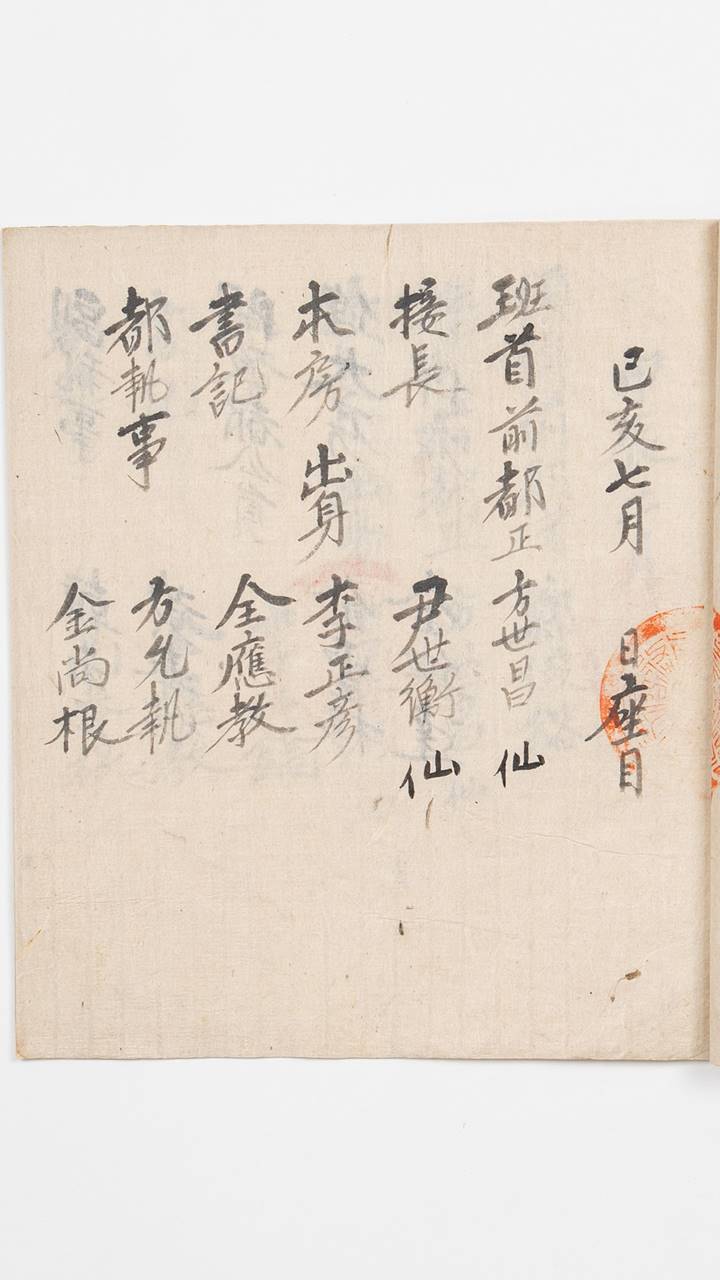 己亥七月 日座目
班首前都正 方世昌 仙
接長 尹世衡 仙
本房 出身 李正彦
書記 全應敎
都執事 方允執
金尙根